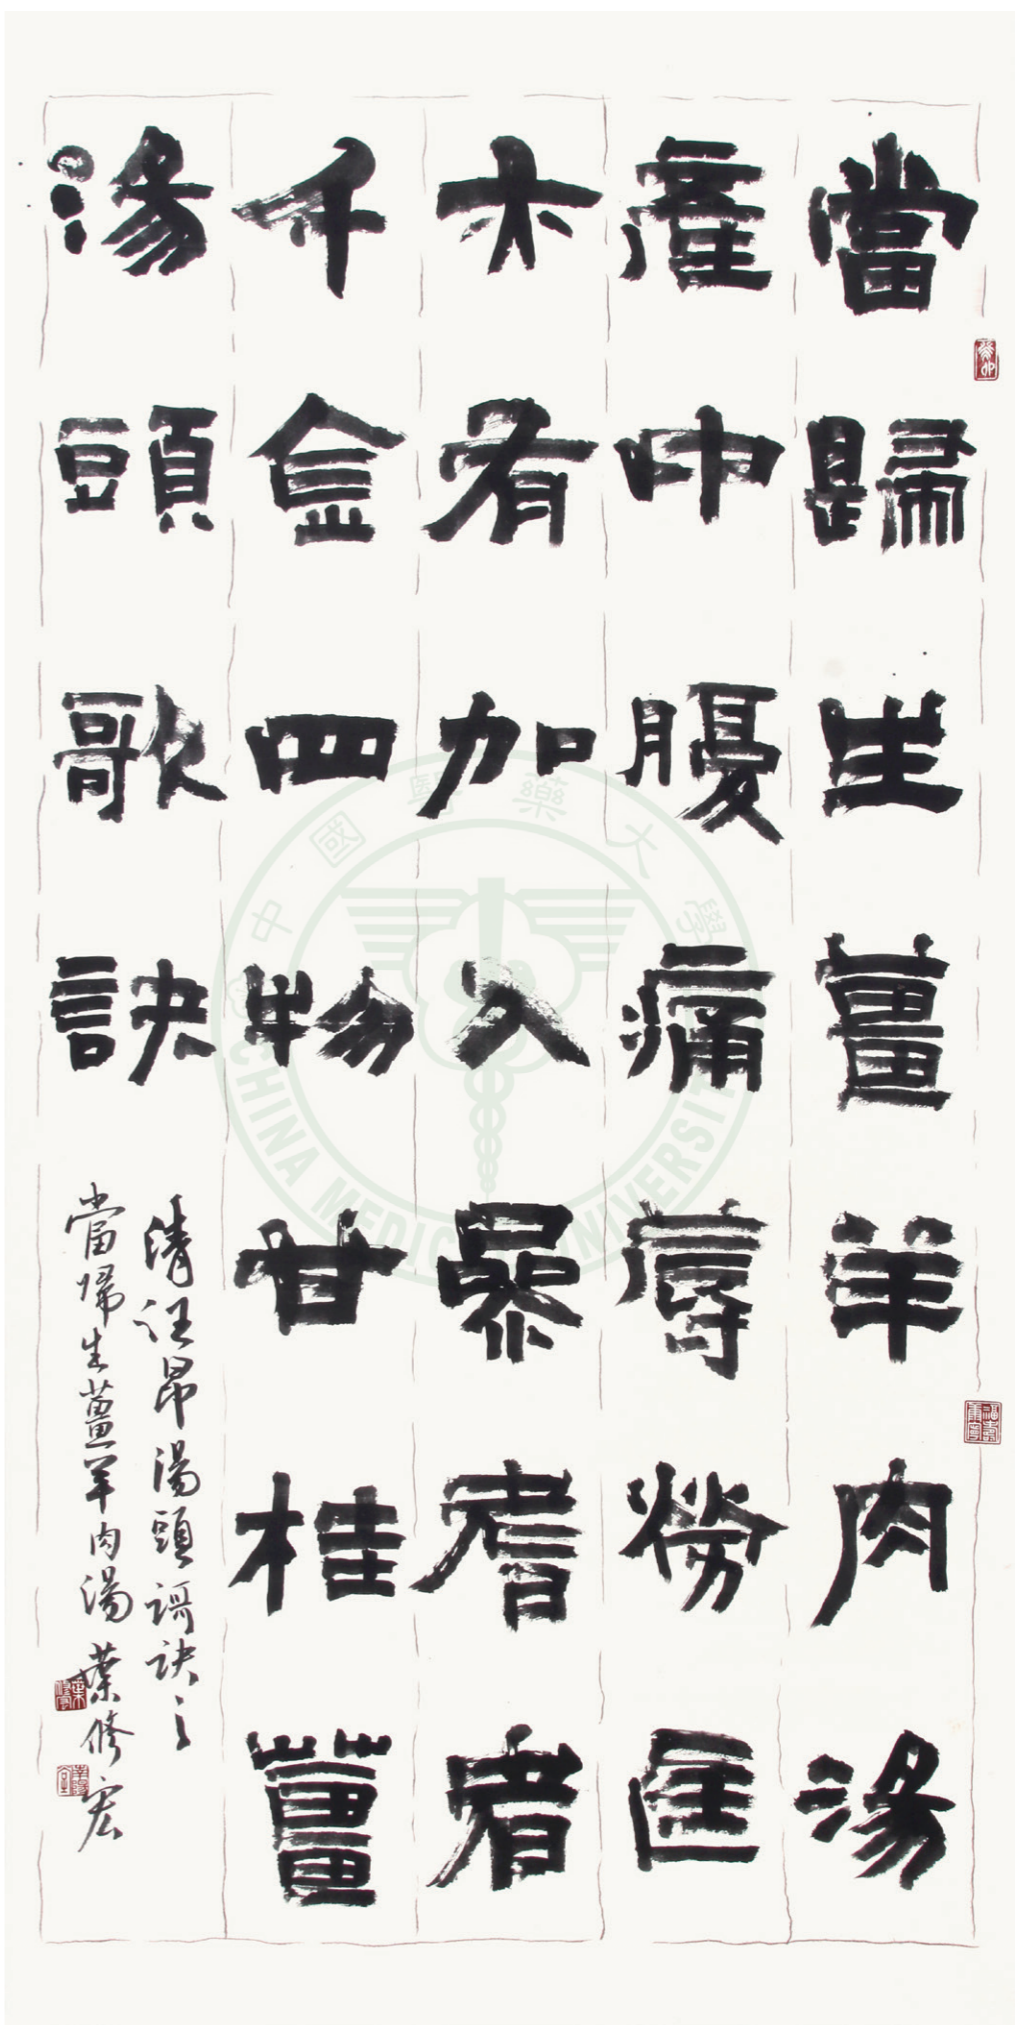 當歸生薑羊肉湯
產中腹痛辱勞匡
亦有加入參耆者
千金四物甘桂薑
湯頭歌訣
清汪昂湯頭謌訣之
當歸生薑羊肉湯 葉修宏
癸卯
福壽康寧
中國醫藥大學
CHINA MEDICAL UNIVERSITY